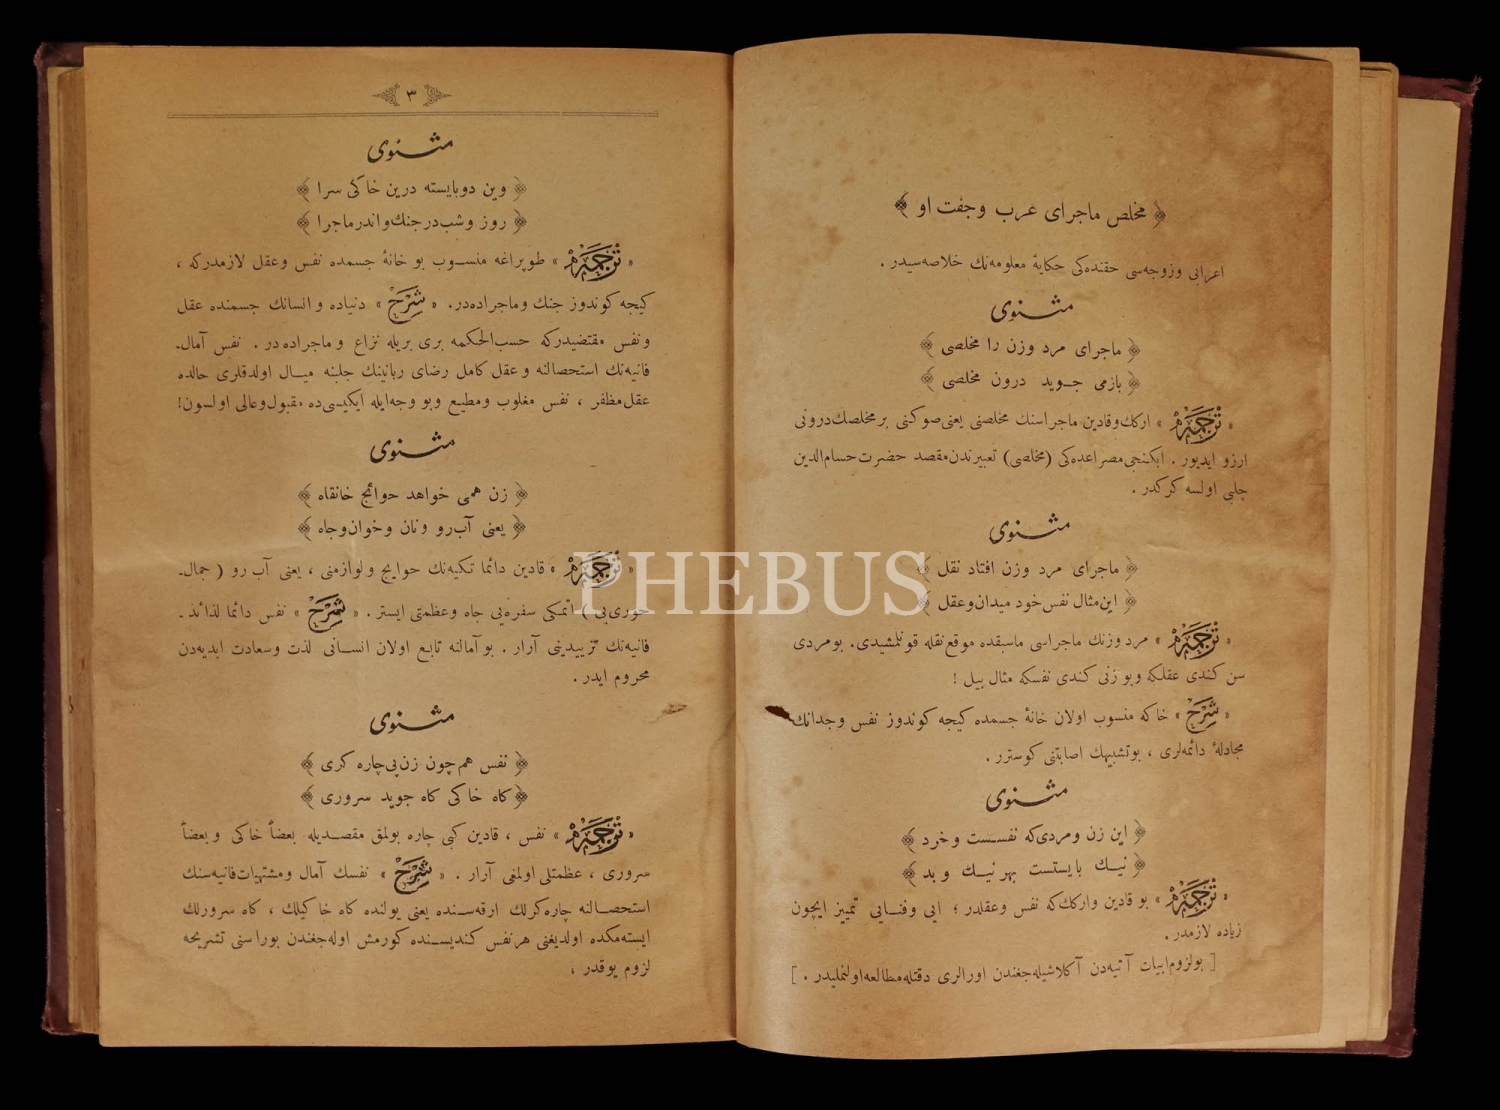 ﴿ مخلص ماجرای عرب وجفت او ﴾
اعرابی وزوجه‌سی حقنده‌کی حکایهٔ معلومه‌نك خلاصه‌سیدر .
مثنوی
﴿ ماجرای مرد وزن را مخلصی ﴾
﴿ بازمی جـوید درون مخلصی ﴾
« ترجمه » ارکك وقادین ماجراسنك مخلصنی یعنی صوکنی برمخلصك درونی
ارزو ایدیور . ایکنجی مصراعده‌کی (مخلصی) تعبیرندن مقصد حضرت حسام‌الدین
چلبی اولسه کرکدر .
مثنوی
﴿ ماجرای مرد وزن افتاد نقل ﴾
﴿ این مثال نفس خود میدان وعقل ﴾
« ترجمه » مرد وزنك ماجراسی ماسبقده موقع نقله قونلمشیدی. بومردی
سن کندی عقلکه وبو زنی کندی نفسکه مثال بیل !
« شرح » خاکه منسوب اولان خانهٔ جسمده کیجه کوندوز نفس وجدانك
مجادلهٔ دائمه‌لری ، بوتشبیهك اصابتنی کوسترر .
مثنوی
﴿ این زن ومردی که نفسست وخرد ﴾
﴿ نیـك بایستست بهر نیـك وبد ﴾
« ترجمه » بو قادین وارکك که نفس وعقلدر ؛ ایی وفنـایی تمییز ایچون
زیاده لازمدر .
[ بولزوم ابیات آتیه‌دن آکلاشیله‌جغندن اورالری دقتله مطالعه اولنملیدر . ]
٣
مثنوی
﴿ وین دوبایسته درین خاکی سرا ﴾
﴿ روز وشب درجنك واندر ماجرا ﴾
« ترجمه » طوپراغه منسـوب بو خانهٔ جسمده نفس وعقل لازمدرکه ،
کیجه کوندوز جنك وماجراده‌در. « شرح » دنیاده وانسانك جسمنده عقل
ونفس مقتضیدرکه حسب‌الحکمه بری بریله نزاع وماجراده‌در . نفس آمال‌ـ
فانیه‌نك استحصالنه وعقل کامل رضای ربانینك جلبنه میـال اولدقلری حالده
عقل مظفر ، نفس مغلوب ومطیع وبو وجه‌ایله ایکیسی‌ده مقبول وعالی اولسون!
مثنوی
﴿ زن همی خواهد حوائج خانقاه ﴾
﴿ یعنی آب‌رو ونان وخوان‌وجاه ﴾
« ترجمه » قادین دائما تکیه‌نك حوایج ولوازمنی ، یعنی آب رو ( جمال‌ـ
اتمکی سفره‌یی جاه وعظمتی ایستر . « شرح » نفس دائما لذائذـ
فانیه‌نك تزییدینی آرار . بوآمالنه تابع اولان انسـانی لذت وسعادت ابدیه‌دن
محروم ایدر .
مثنوی
﴿ نفس هم‌چون زن‌پی‌چاره کری ﴾
﴿ کاه خاکی کاه جوید سروری ﴾
« ترجمه » نفس ، قادین کبی چاره بولمق مقصـدیله بعضاً خاکی وبعضاً
سروری ، عظمتلی اولمغی آرار . « شرح » نفسك آمال ومشتهیات‌فانیه‌سنك
استحصـالنه چاره‌کرلك ارقه‌سـنده یعنی یولنده کاه خاکیلك ، کاه سرورلك
ایسته‌مکده اولدیغنی هرنفس کندیسـنده کورمش اوله‌جغندن بوراسنی تشریحه
لزوم یوقدر ،
PHEBUS